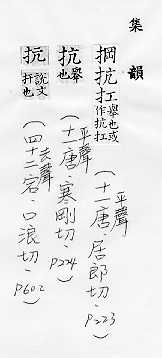 集韻
掆抗扛舉也或作抗扛
平聲
(十一唐·居郎切·P223)
抗舉也
平聲
(十一唐·寒剛切·P224)
抗說文扞也
去聲
(四十二宕·口浪切·P602)